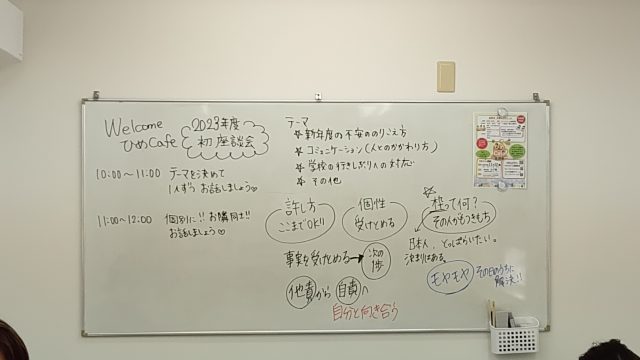 Welcome
ひめCafe
2023年度
初 座談会
10:00〜11:00 テーマを決めて
1人ずつ お話しましょう♡
11:00〜12:00 個別に!! お隣同士!!
お話しましょう♡
テーマ
☆ 新年度の不安ののりこえ方
☆ コミュニケーション(人とのかかわり方)
☆ 学校の行きしぶりへの対応
☆ その他
許し方
ここまでOK!!
個性
受けとめる
☆枠って何?
その人がもつきもち
日本人、とっぱらいたい。
決まりはある。
事実を受けとめる→次の1歩
他責から 自責へ
自分と向き合う
モヤモヤ その日のうちに
解決!!